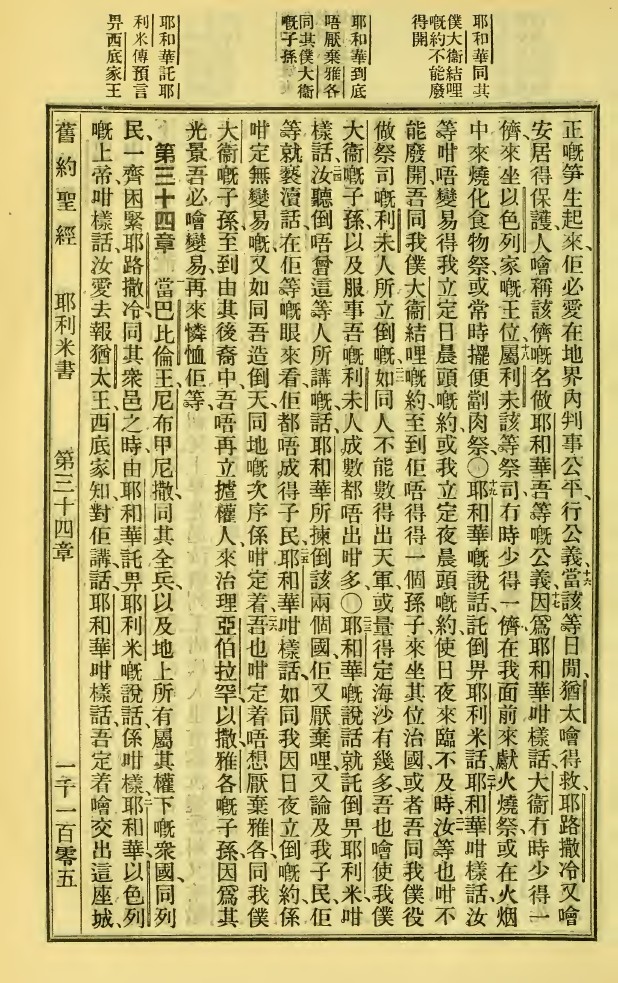 耶和華同其
僕大衛結哩
嘅約不能廢
得開
耶和華到底
唔厭棄雅各
同其僕大衛
嘅子孫
耶和華託耶
利米傳預言
畀西底家王
正嘅笋生起來、佢必愛在地界內判事公平、行公義、十六當該等日間猶太噲得救、耶路撒冷又噲
安居得保護、人噲稱該儕嘅名做耶和華吾等嘅公義、十七因爲耶和華咁樣話、大衛冇時少得一
儕來坐以色列家嘅王位、十八屬利未該等祭司冇時少得一儕在我面前來獻火燒祭、或在火烟
中來燒化食物祭、或常時擺便劏肉祭、〇十九耶和華嘅說話託倒畀耶利米話、二十耶和華咁樣話、汝
等咁唔變易得我立定日晨頭嘅約、或我立定夜晨頭嘅約、使日夜來臨不及時、二一汝等也咁不
能廢開吾同我僕大衛結哩嘅約、至到佢唔得得一個孫子來坐其位治國、或者吾同我僕役
做祭司嘅利未人所立倒嘅、二二如同人不能數得出天軍、或量得定海沙有幾多、吾也噲使我僕
大衛嘅子孫、以及服事吾嘅利未人、成數都唔出咁多、〇二三耶和華嘅說話就託倒畀耶利米、咁
樣話、二四汝聽倒唔曾、這等人所講嘅話、耶和華所揀倒該兩個國、佢又厭棄哩、又論及我子民、佢
等就褻瀆話、在佢等嘅眼來看、佢都唔成得子民、二五耶和華咁樣話、如同我因日夜立倒嘅約、係
咁定無變易嘅、又如同吾造倒天同地嘅次序、係咁定着、二六吾也咁定着唔想厭棄雅各、同我僕
大衛嘅子孫、至到由其後裔中、吾唔再立揸權人、來治理亞伯拉罕、以撒、雅各嘅子孫、因爲其
光景吾必噲變易、再來憐恤佢等、
第三十四章 當巴比倫王尼布甲尼撒、同其全兵、以及地上所有屬其權下嘅衆國、同列
民、一齊困緊耶路撒冷同其衆邑之時、由耶和華託畀耶利米嘅說話、係咁樣、二耶和華以色列
嘅上帝咁樣話、汝愛去報猶太王西底家知、對佢講話、耶和華咁樣話、吾定着噲交出這座城、
舊約聖經 耶利米書 第三十四章 一千一百零五